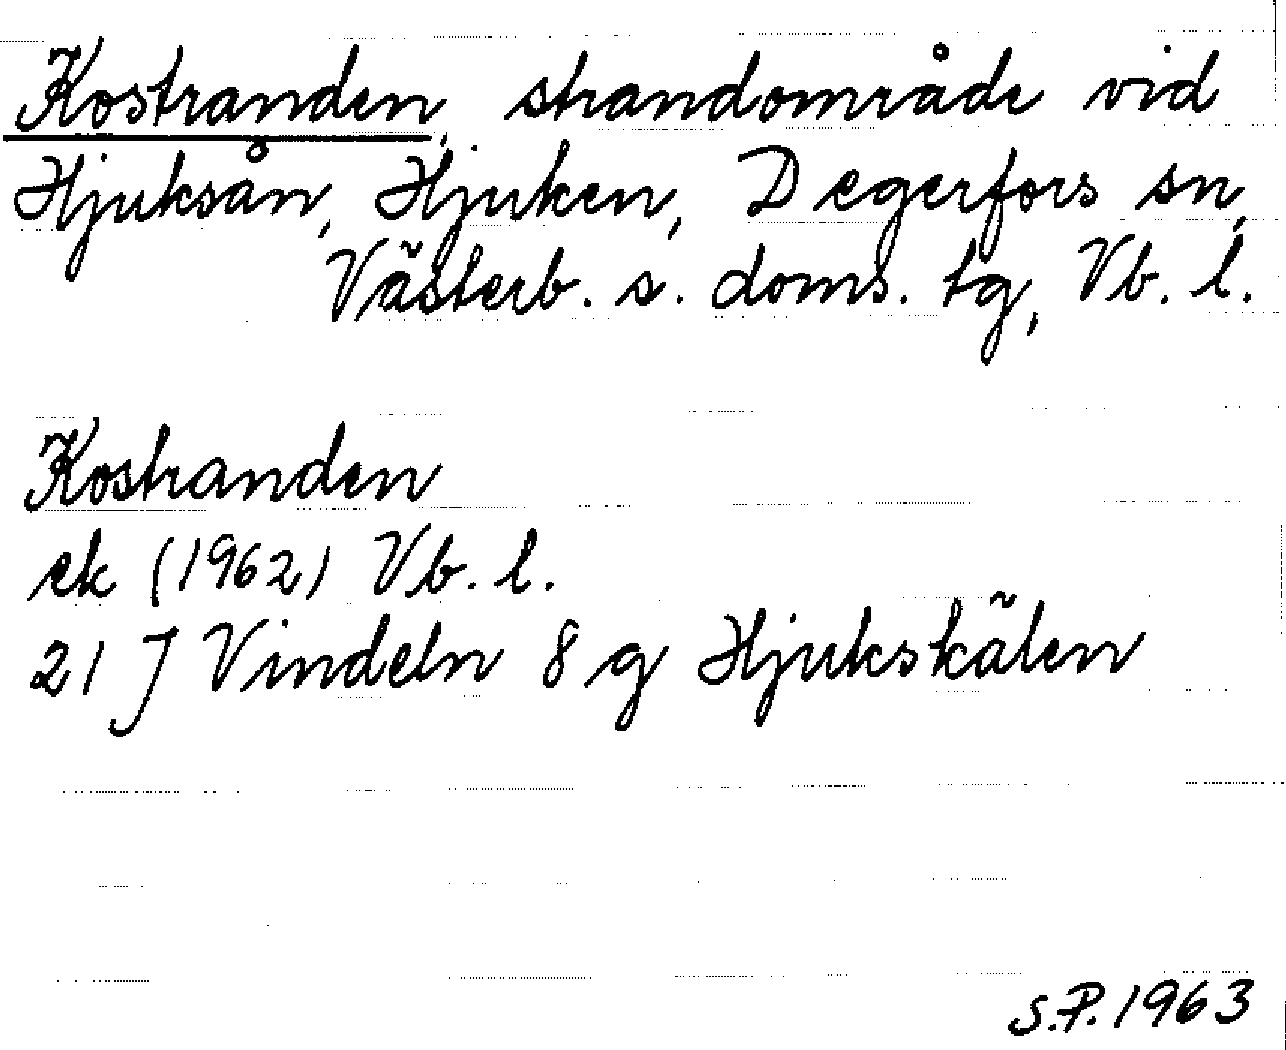 Kostranden, strandområde vid
Hjuksån, Hjuken, Degerfors sn,
Västerb. s. doms. tg, Vb. l.
Kostranden
ek (1962) Vb. l.
21 J Vindeln 8 g Hjukskälen
S.P. 1963